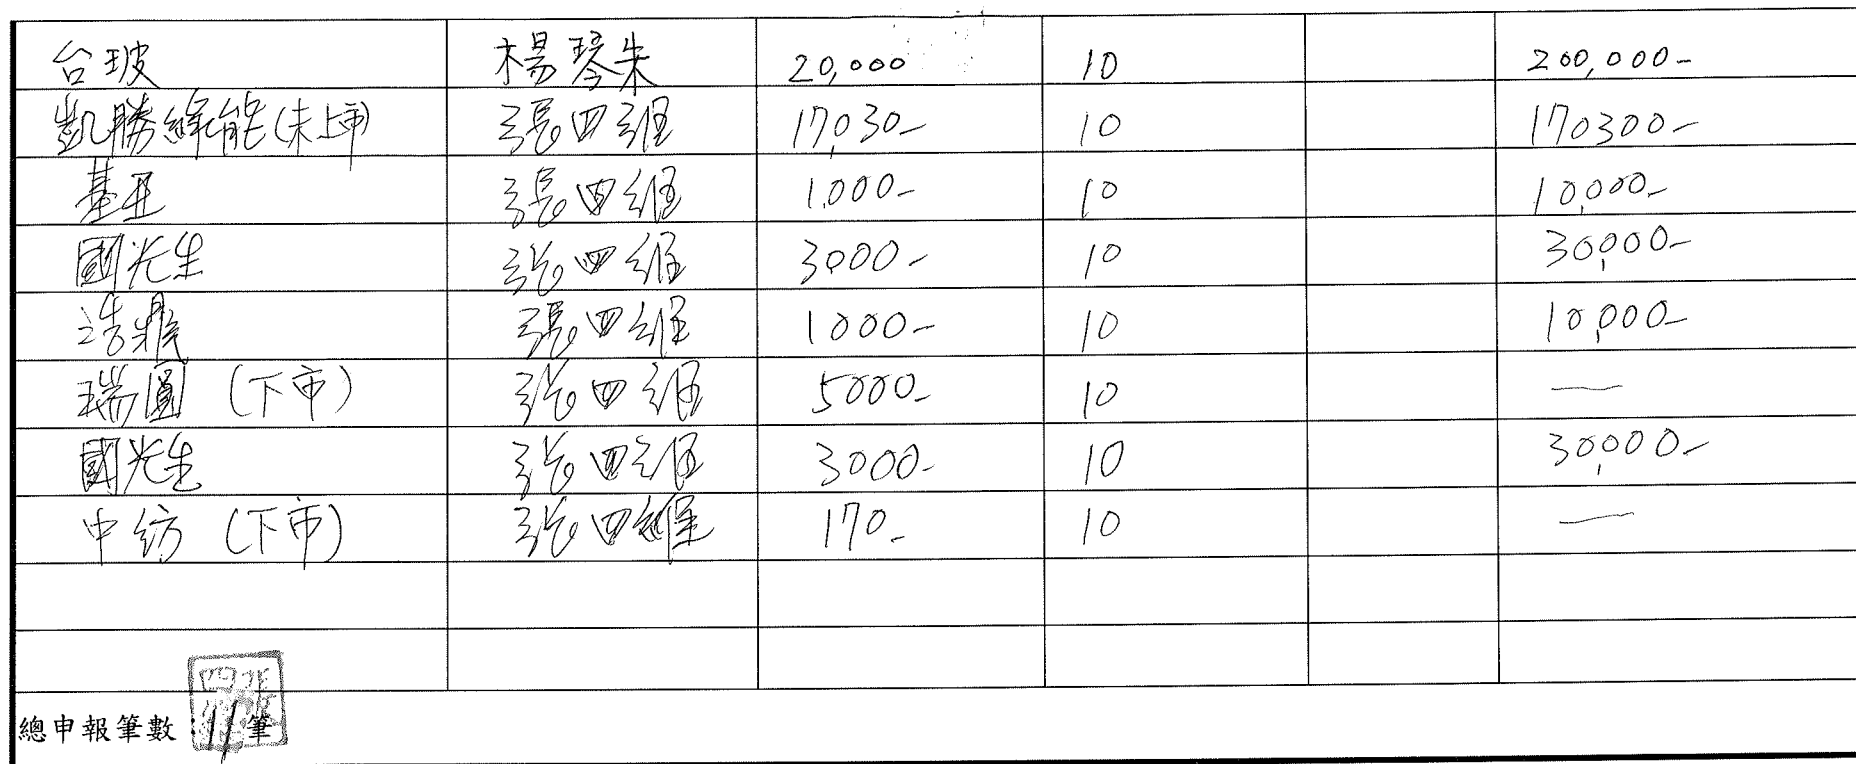 台玻 楊琴朱 20,000 10 200,000-
凱勝綠能(未上市) 張四維 17,030- 10 170300-
基亚 張四維 1,000- 10 10,000-
國光生 張四維 3,000- 10 30,000-
浩鼎 張四維 1000- 10 10,000-
瑞圓 (下市) 張四維 5000- 10 —
國光生 張四維 3000- 10 30,000-
中紡 (下市) 張四維 170- 10 —
總申報筆數：11筆